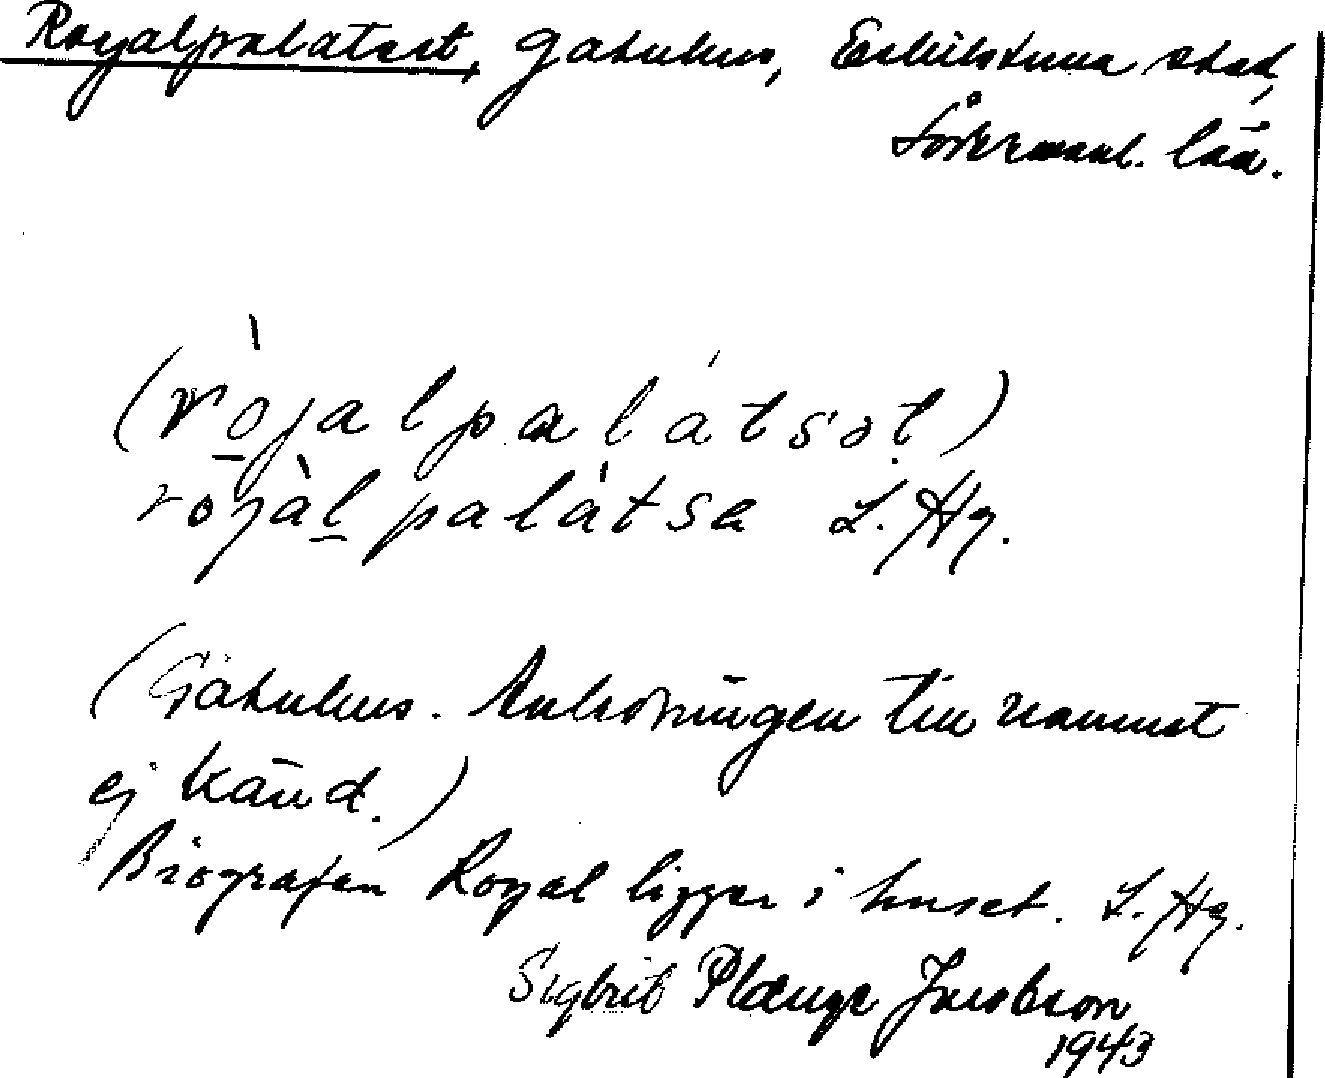 Royalpalatset, gatuhus, Eskilstuna stad,
Södermanl. län.
(ròjalpalátsət)
rojàlpalátsa L. Hg.
(Gatuhus. Anledningen till namnet
ej känd.)
Biografen Royal ligger i huset. L. Hg.
Sigbrit Plænge Jacobson
1943